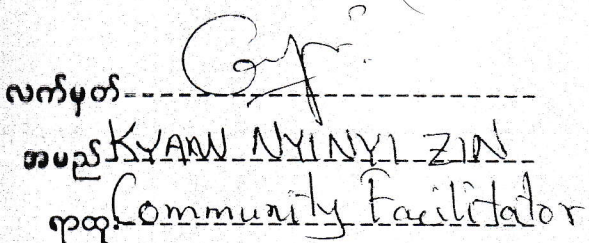 လက်မှတ်
အမည် KYAW NYINYI ZIN
ရာထူး Community Facilitator